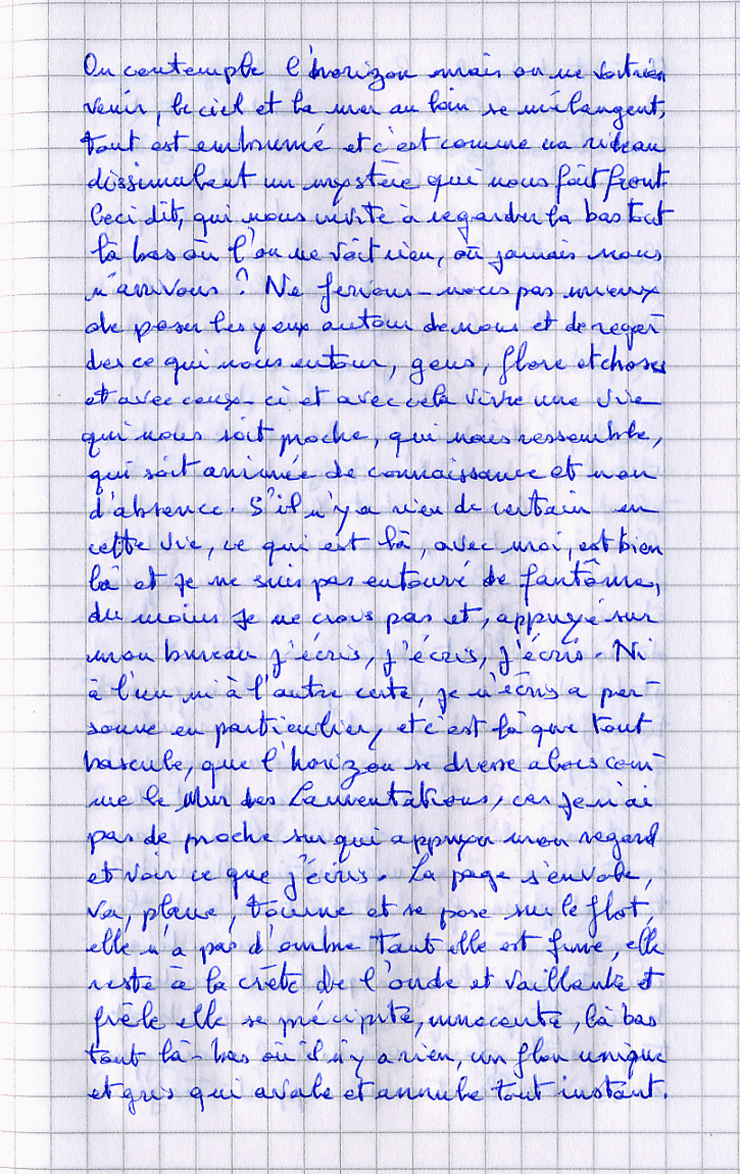 On contemple l'horizon mais on ne voit rien
venir, le ciel et la mer au loin se mélangent,
tout est embrumé et c'est comme un rideau
dissimulant un mystère qui nous fait front.
Ceci dit, qui nous invite à regarder la bas tout
là bas où l'on ne voit rien, où jamais nous
n'arrivons ? Ne ferions-nous pas mieux
de poser les yeux autour de nous et de regar-
der ce qui nous entour, gens, flore et choses
et avec ceux-ci et avec cela vivre une vie
qui nous soit proche, qui nous ressemble,
qui soit animée de connaissance et non
d'absence. S'il n'y a rien de certain en
cette vie, ce qui est là, avec moi, est bien
là et je ne suis pas entouré de fantôme,
du moins je ne crois pas et, appuyé sur
mon bureau j'écris, j'écris, j'écris. Ni
à l'un ni à l'autre certe, je n'écris a per-
sonne en particulier, et c'est là que tout
bascule, que l'horizon se dresse alors com-
me le Mur des Lamentations, car je n'ai
pas de proche sur qui appuyer mon regard
et voir ce que j'écris. La page s'envole,
va, plane, tourne et se pose sur le flot,
elle n'a pas d'ombre tant elle est fine, elle
reste à la crête de l'onde et vaillante et
frêle elle se précipite, innocente, là bas
tout là-bas où il n'y a rien, un flou unique
et gris qui avale et annule tout instant.